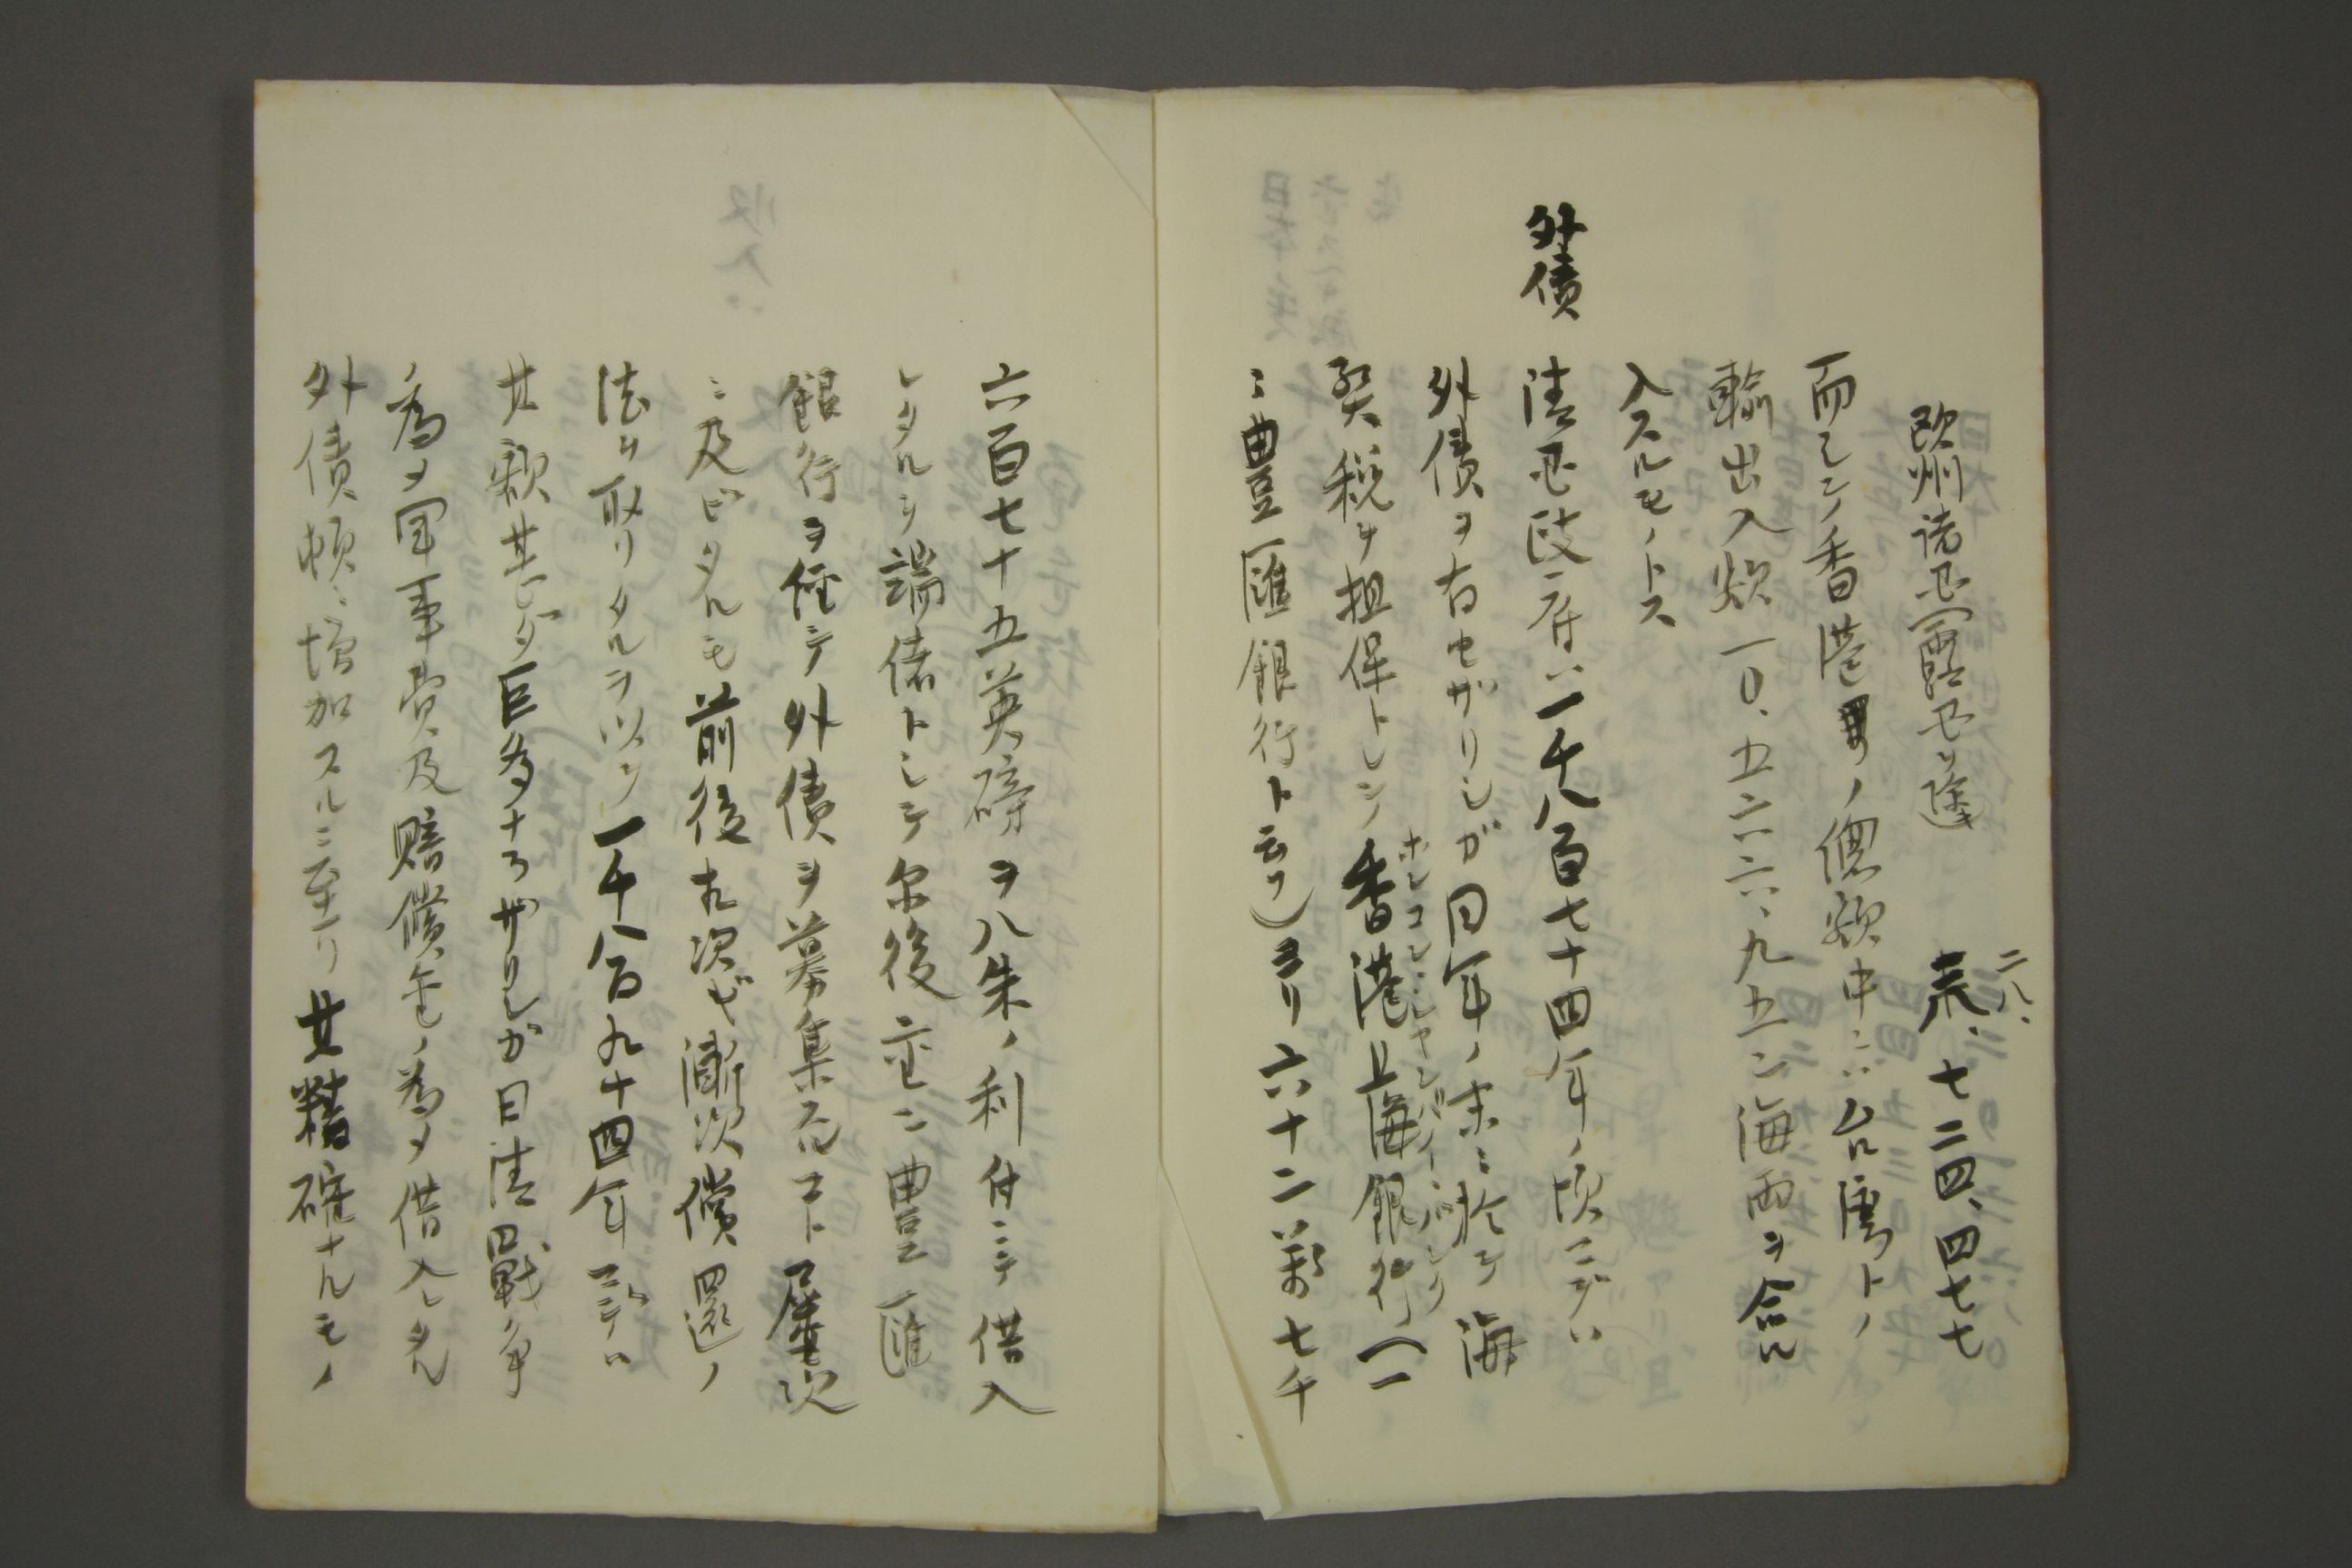 欧州諸国（露国ヲ除ク）　二八、七二四、四七七
而シテ香港ノ総額中ニハ台湾トノ
輸出入額一〇、五六六、九五二海両ヲ合ム
入スルモノトス
外債
清国政府ハ一千八百七十四年ノ頃マデハ
外債ヲ有セザリシガ同年ノ末ニ於テ海
関税ヲ担保トシテ香港上海銀行（一
ホンコン、シャンハイ、バンク
ニ豊匯銀行ト云フ）ヨリ六十二萬七千
六百七十五英磅ヲ八朱ノ利付ニテ借入
レタルヲ端緒トシテ尓後亦ニ豊匯
銀行ヲ経テ外債ヲ募集スルコト屡次
ニ及ビタルモ前後九次ガ漸次償還ノ
法ヲ取リタルヲ以テ一千八百九十四年マデハ
其額甚ダ巨多ナラザリシガ日清戦争
ノ為メ軍事費及賠償金ノ為メ借入レタル
外債頓ニ増加スルニ至リ其精確ナルモノ